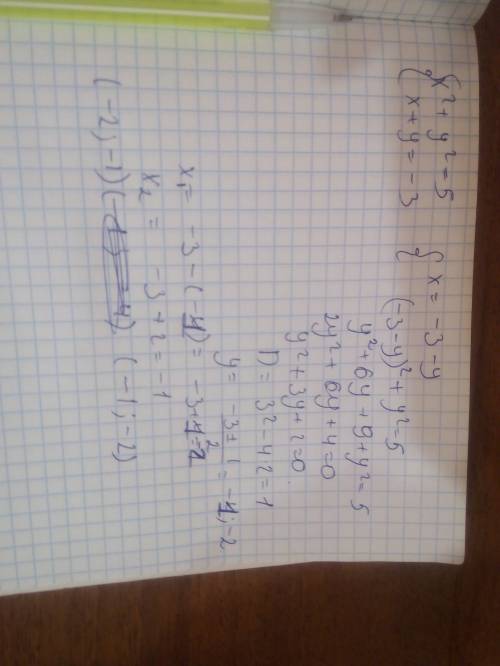 { x² + y² = 5
{ x + y = -3
{ x = -3 - y
(-3-y)² + y² = 5
y² + 6y + 9 + y² = 5
2y² + 6y + 4 = 0
y² + 3y + 2 = 0
D = 3² - 4·2 = 1
y = -3 ± 1 = -1; -2
x₁ = -3 - (-1) = -3 + 1 = -2
x₂ = -3 + 2 = -1
(-2; -1) (-1; -2)